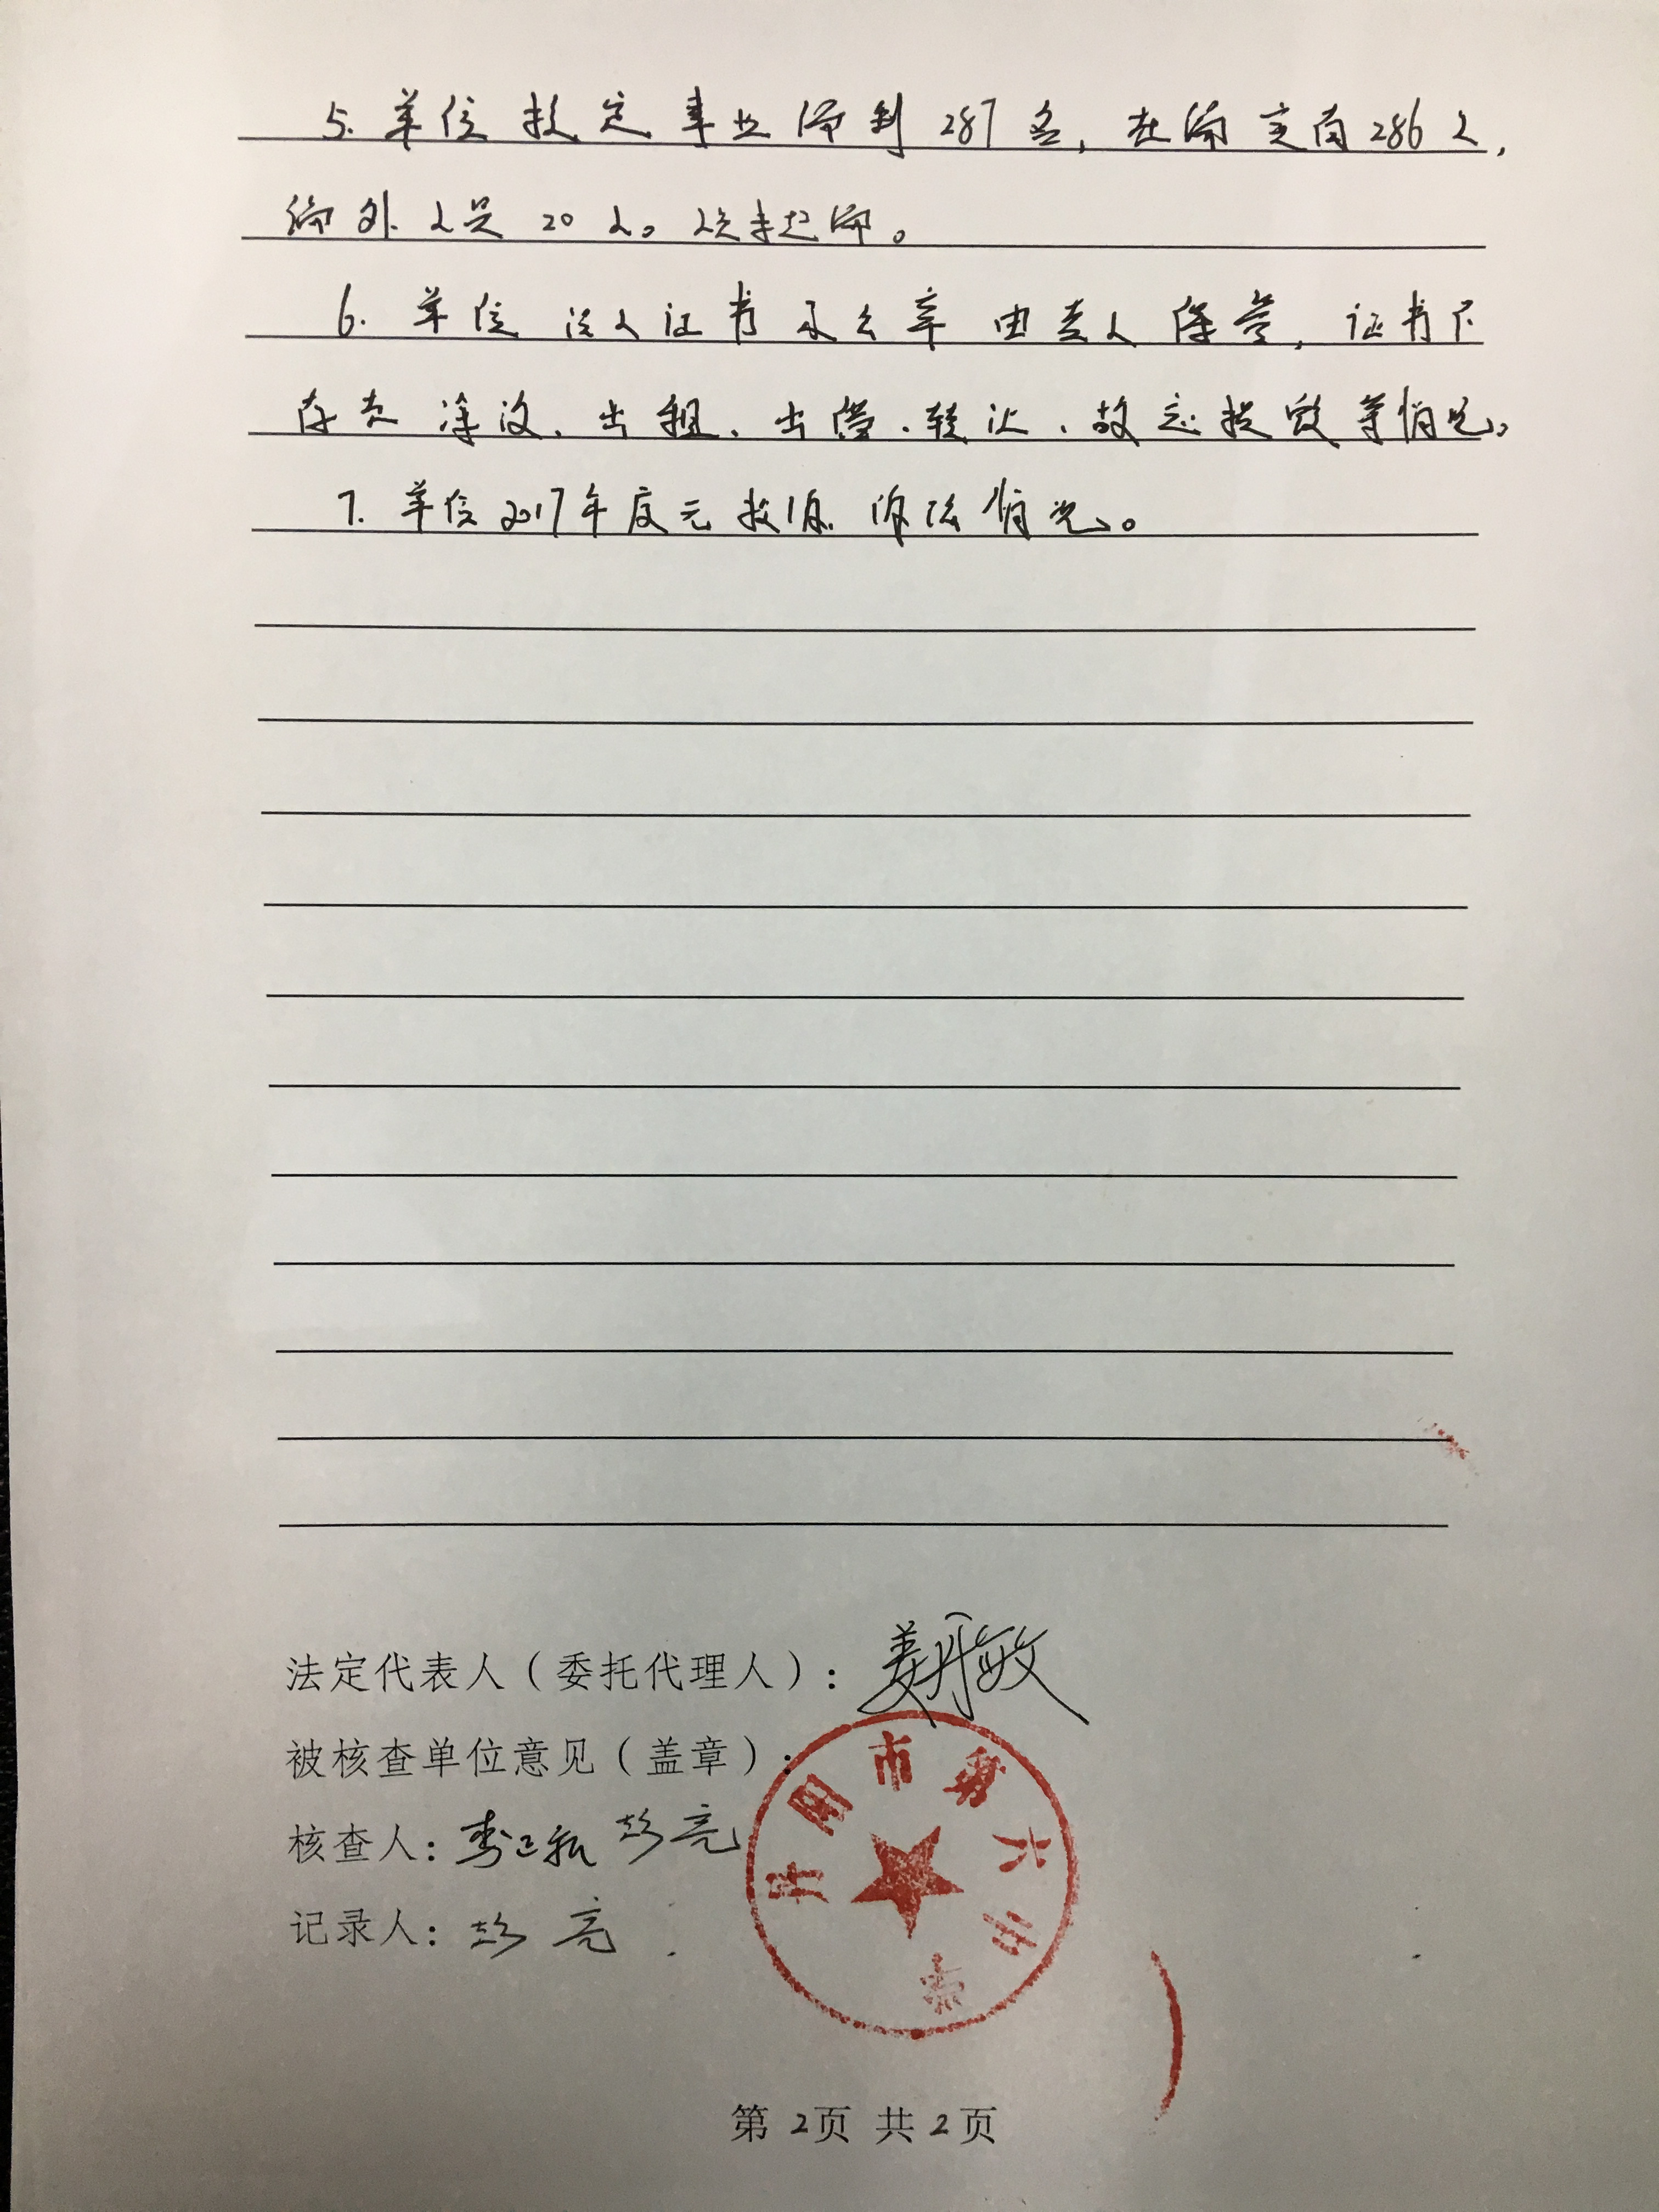 5. 单位核定事业编制287名,在编定岗286人,
编外人员20人。从未超编。
6. 单位法人证书及公章由专人保管,证书不
存在涂改、出租、出借、转让、故意损毁等情况。
7. 单位2017年度无投诉、诉讼情况。
法定代表人(委托代理人):
被核查单位意见(盖章):
丹阳市第六中学
核查人: 彭亮
记录人: 彭亮
第2页 共2页